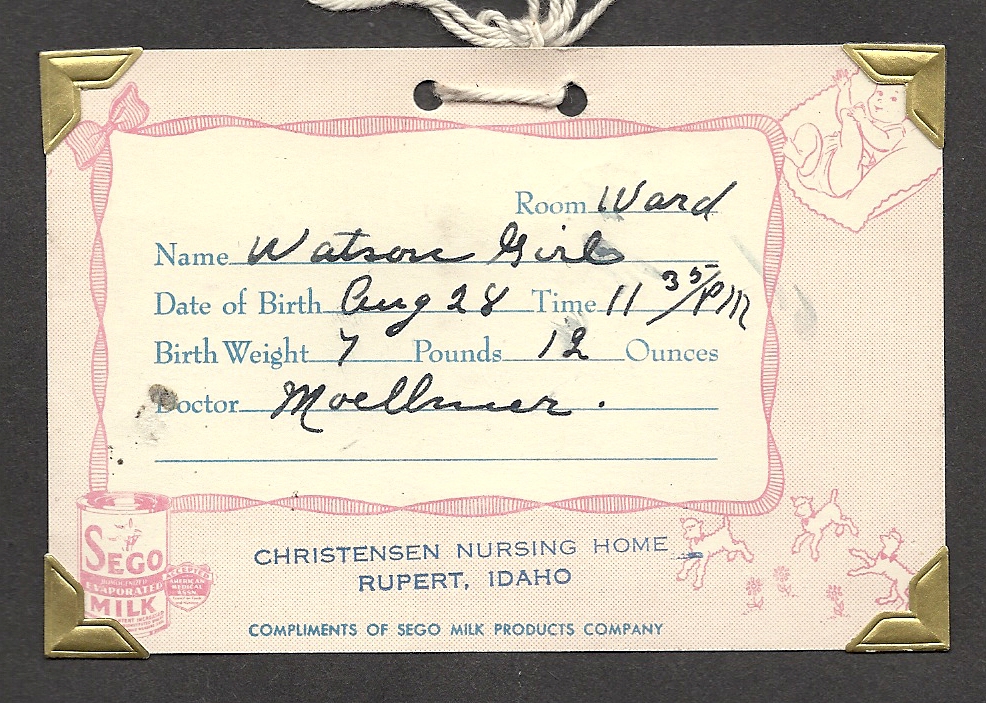 Room Ward
Name Watson Girl
Date of Birth Aug 28 Time 11 35/PM
Birth Weight 7 Pounds 12 Ounces
Doctor Moellmer.
SEGO
HOMOGENIZED
EVAPORATED
MILK
ACCEPTED
AMERICAN
MEDICAL
ASSN.
CHRISTENSEN NURSING HOME
RUPERT, IDAHO
COMPLIMENTS OF SEGO MILK PRODUCTS COMPANY